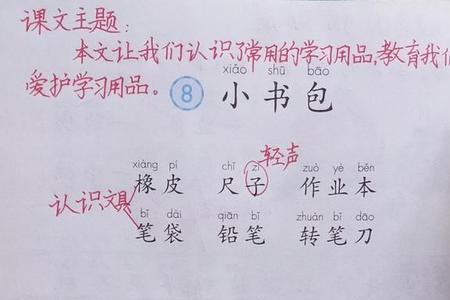 课文主题：
本文让我们认识了常用的学习用品,教育我们
爱护学习用品。
xiǎo shū bāo
8 小书包
轻声
xiàng pí chǐ zi zuò yè běn
橡皮 尺子 作业本
认识文具
bǐ dài qiān bǐ zhuàn bǐ dāo
笔袋 铅笔 转笔刀